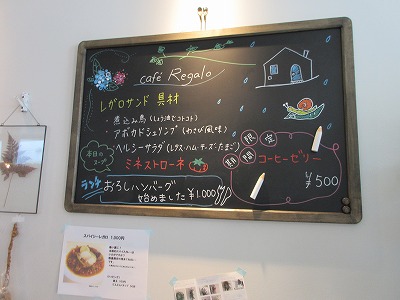 café Regalo
レガロサンド 具材
・煮込み鳥(しょう油でコトコト)
・アボカドシュリンプ(わさび風味)
・ヘルシーサラダ(レタス・ハム・チーズ・たまご)
本日のスープ
ミネストローネ
ランチ
おろしハンバーグ
始めました ¥1.000
期間
限定
コーヒーゼリー
¥500
スパイシーレガロ 1,000円